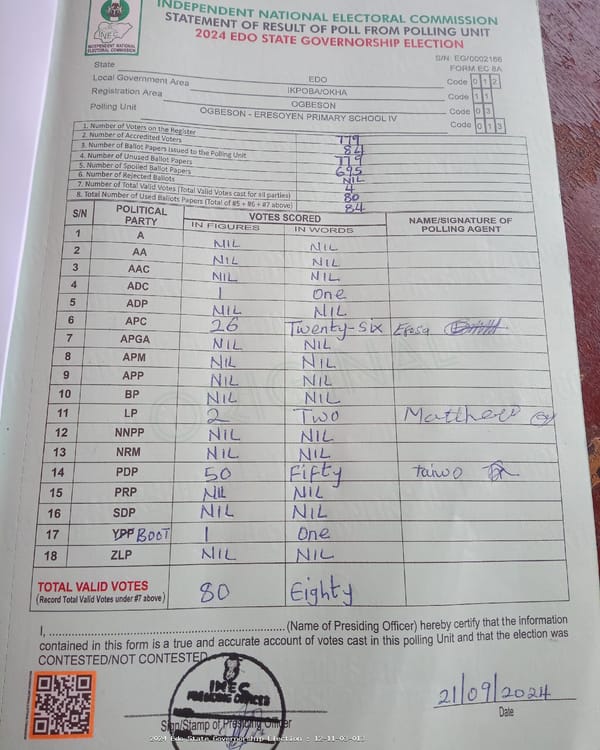 INDEPENDENT NATIONAL ELECTORAL COMMISSION
STATEMENT OF RESULT OF POLL FROM POLLING UNIT
2024 EDO STATE GOVERNORSHIP ELECTION
INEC
INDEPENDENT NATIONAL ELECTORAL COMMISSION
S/N: EG/0002166
FORM EC 8A
State EDO Code 0 1 2
Local Government Area IKPOBA/OKHA Code 1 1
Registration Area OGBESON Code 0 3
Polling Unit OGBESON - ERESOYEN PRIMARY SCHOOL IV Code 0 1 3
1. Number of Voters on the Register 779
2. Number of Accredited Voters 84
3. Number of Ballot Papers Issued to the Polling Unit 779
4. Number of Unused Ballot Papers 695
5. Number of Spoiled Ballot Papers NIL
6. Number of Rejected Ballots 4
7. Number of Total Valid Votes (Total Valid Votes cast for all parties) 80
8. Total Number of Used Ballots Papers (Total of #5 + #6 + #7 above) 84
S/N POLITICAL PARTY VOTES SCORED NAME/SIGNATURE OF POLLING AGENT
IN FIGURES IN WORDS
1 A NIL NIL
2 AA NIL NIL
3 AAC NIL NIL
4 ADC 1 One
5 ADP NIL NIL
6 APC 26 Twenty-six Efosa
7 APGA NIL NIL
8 APM NIL NIL
9 APP NIL NIL
10 BP NIL NIL
11 LP 2 Two Matthew
12 NNPP NIL NIL
13 NRM NIL NIL
14 PDP 50 Fifty taiwo
15 PRP NIL NIL
16 SDP NIL NIL
17 YPP BOOT 1 One
18 ZLP NIL NIL
TOTAL VALID VOTES 80 Eighty
(Record Total Valid Votes under #7 above)
ORIGINAL
I, ............................................................ (Name of Presiding Officer) hereby certify that the information
contained in this form is a true and accurate account of votes cast in this polling Unit and that the election was
CONTESTED/NOT CONTESTED.
INEC
PRESIDING OFFICER
21/09/2024
Sign/Stamp of Presiding Officer
Date
2024 Edo State Governorship Election : 12-11-03-013